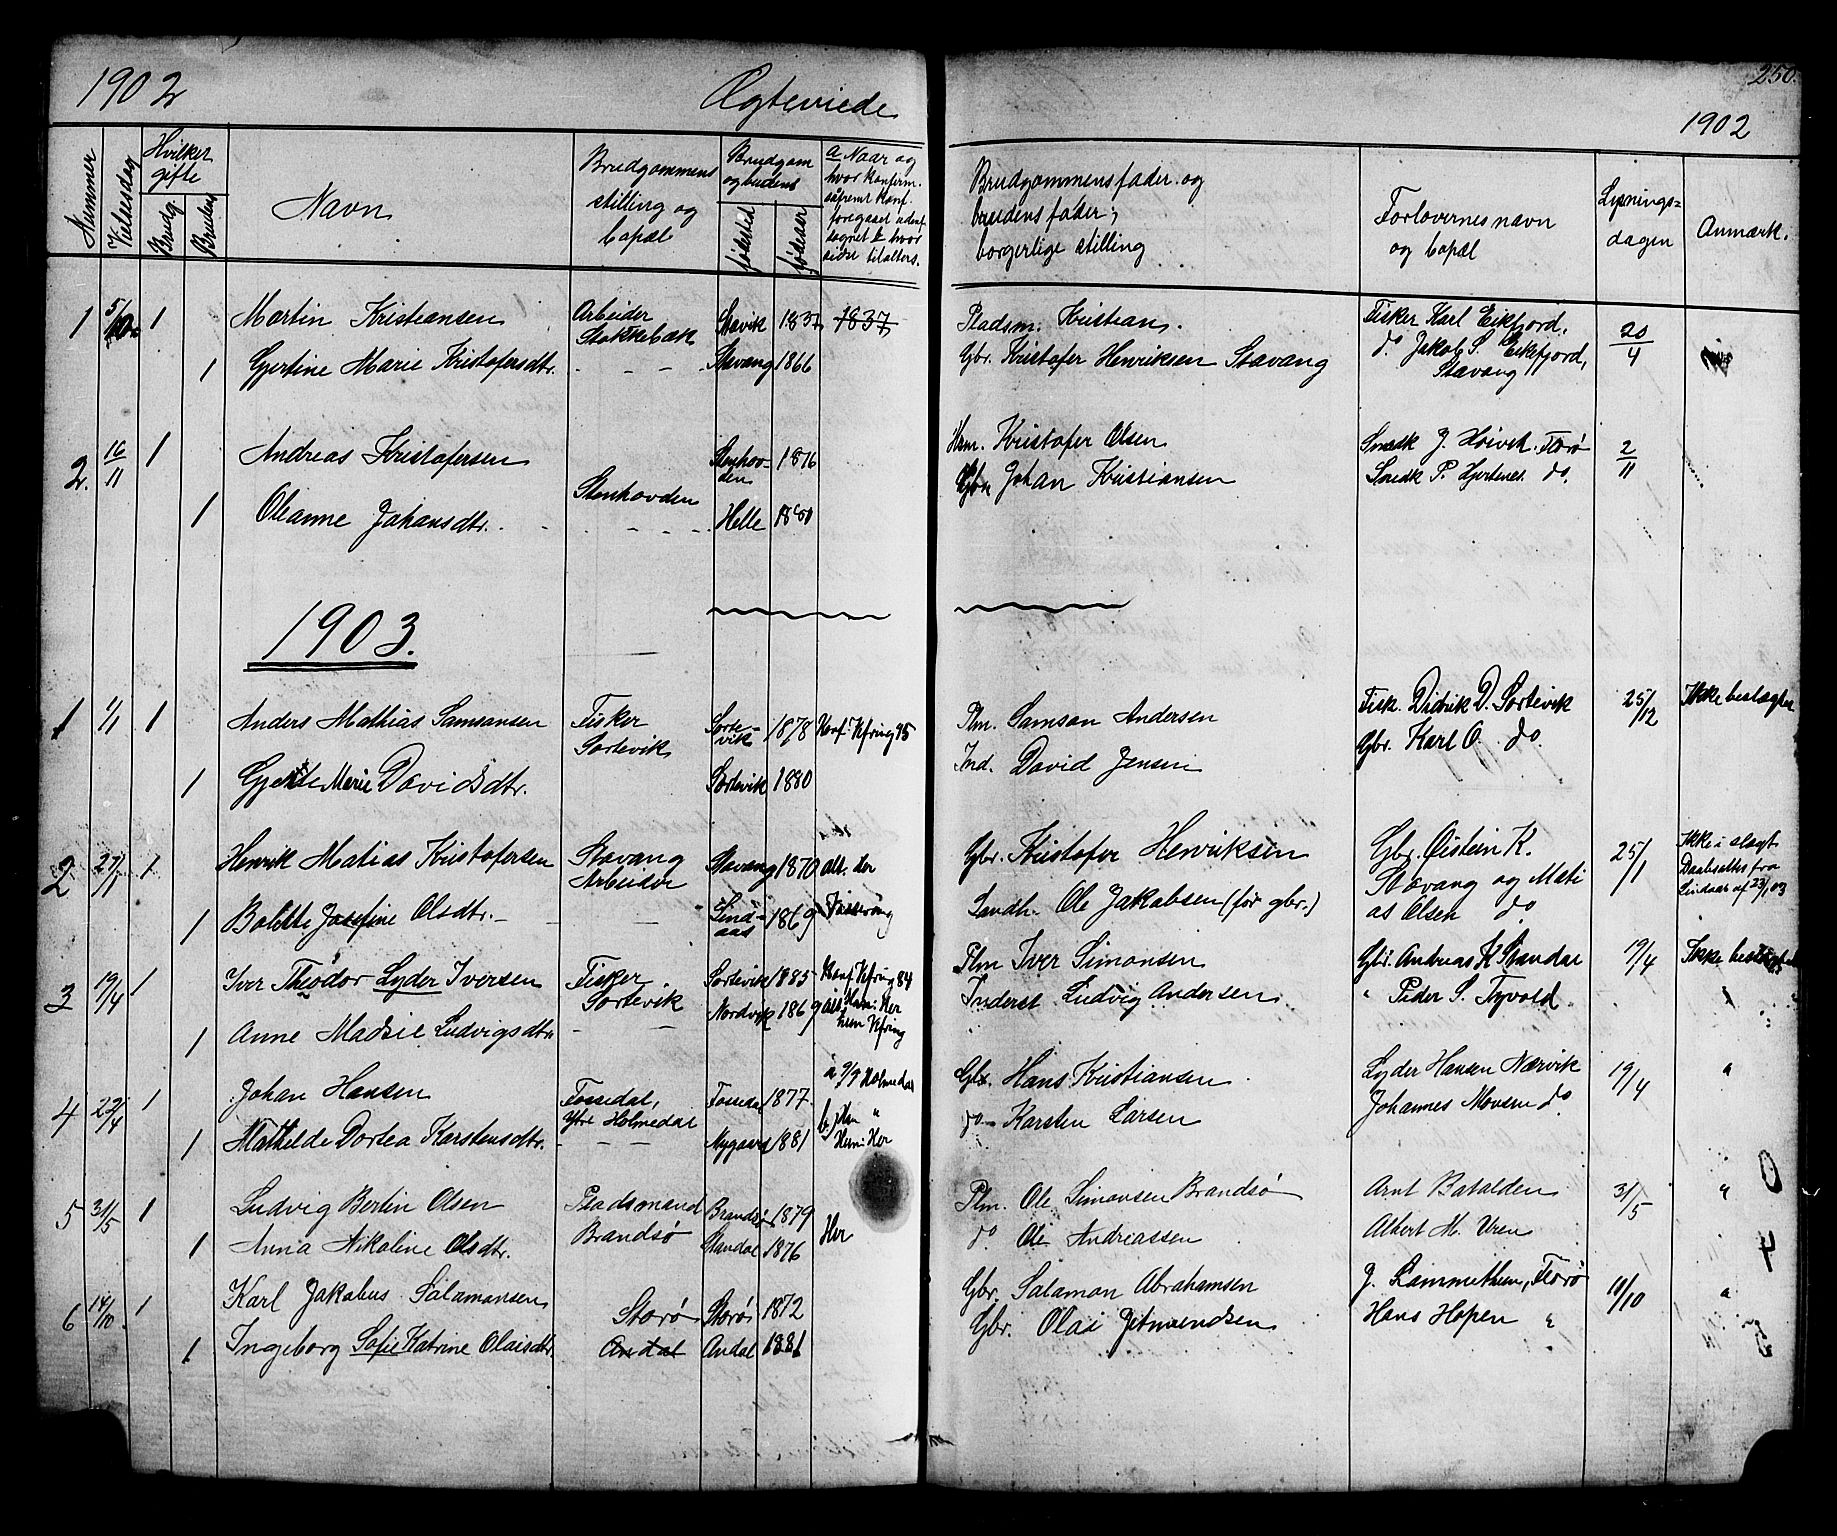 1902
Ægteviede
250.
1902
Nummer
Vielsesdag
Hvilket gifte
Brudg.
Brudens
Navn
Brudgommens stilling og bopæl
Brudgom og brudens
fødested
fødselsaar
a Naar og hvor konfirm. såfremt konf. foregaaet udenf. sognet b hvor sidst tilalters.
Brudgommens fader og brudens fader, borgerlige stilling
Forlovernes navn og bopæl
Lysnings=dagen
Anmærk.
1 5/10 1 Martin Kristiansen Arbeider Stokkebæk Stavik 1837 1837 Pladsm. Kristian. Fisker Karl Eikfjord, 20/4
1 Gjertine Marie Kristofersdtr. Stavang 1866 Gbr. Kristofer Henriksen Stavang do Jakob S. Eikefjord, Stavang
2. 16/11 1 Andreas Kristofersen Stenhovden Stenhovden 1876 Hsm. Kristofer Olsen Smedk J. Hoivik. Florø 2/11
1 Oleanne Johansdtr. Helle 1880 Gbr Johan Kristiansen Smedk P. Hjertenes do.
1903.
1 1/1 1 Anders Mathias Samsonsen Fisker Sortevik Sortevik 1878 Konf. Kfring 95 Plm. Samson Andersen Fisk. Didrik D. Sortevik 25/12 Ikke beslægtet
1 Marie Davidsdtr. Sortevik 1880 Ind. David Jensen Gbr. Karl O. do.
2 27/1 1 Henrik Matias Kristofersen Stavang Arbeider Stavang 1870 alt. der Gbr. Kristofer Henriksen Gbr. Øistein K. Stavang og Matias Olsen do 25/1 Ikke i slægt Daabsattest fra Lindaas af 23/1 03
1 Bolette Josefine Olsdtr. Lindaas 1869 Landh. Ole Jakobsen (før gbr.)
3 19/4 1 Iver Theodor Lyder Iversen Fisker. Sortevik Sortevik 1885 Konf. Kfring 84 Plm Iver Simonsen Gbr. Andreas K Standal 19/4 Ikke beslægt
1 Anne Madsie Ludvigsdtr Nordvik 1869 alt. Han: Her hun Kfring Inderst Ludvig Andersen " Peder S. Tyvold
4 22/4 1 Johan Hansen Fossedal, Ytre Holmedal Fossedal 1877. a 9/9 Holmedal Gbr. Hans Kristiansen Lyder Hansen Nærvik 19/4 "
1 Mathilde Dortea Karstensdtr. Nygaard 1881 b. Han " Hun: Her do Karsten Larsen Johannes Movsen do
5 31/5 1 Ludvig Bertin Olsen Pladsmand Brandsø Brandsø 1879 Her Plm. Ole Simonsen Brandsø Arnt Batalden 31/5 "
1 Anna Nikoline Olsdtr. Standal 1876 do. Ole Andreassen Albert M. Vren
6 14/10 1 Karl Jakobus Salamonsen Storø Storø 1872 Gbr. Salamon Abrahamsen J. Lammethun, Florø 10/10 "
1 Ingeborg Sofie Katrine Olaisdtr. Andal Andal 1881 Gbr. Olai Hans Hopen "